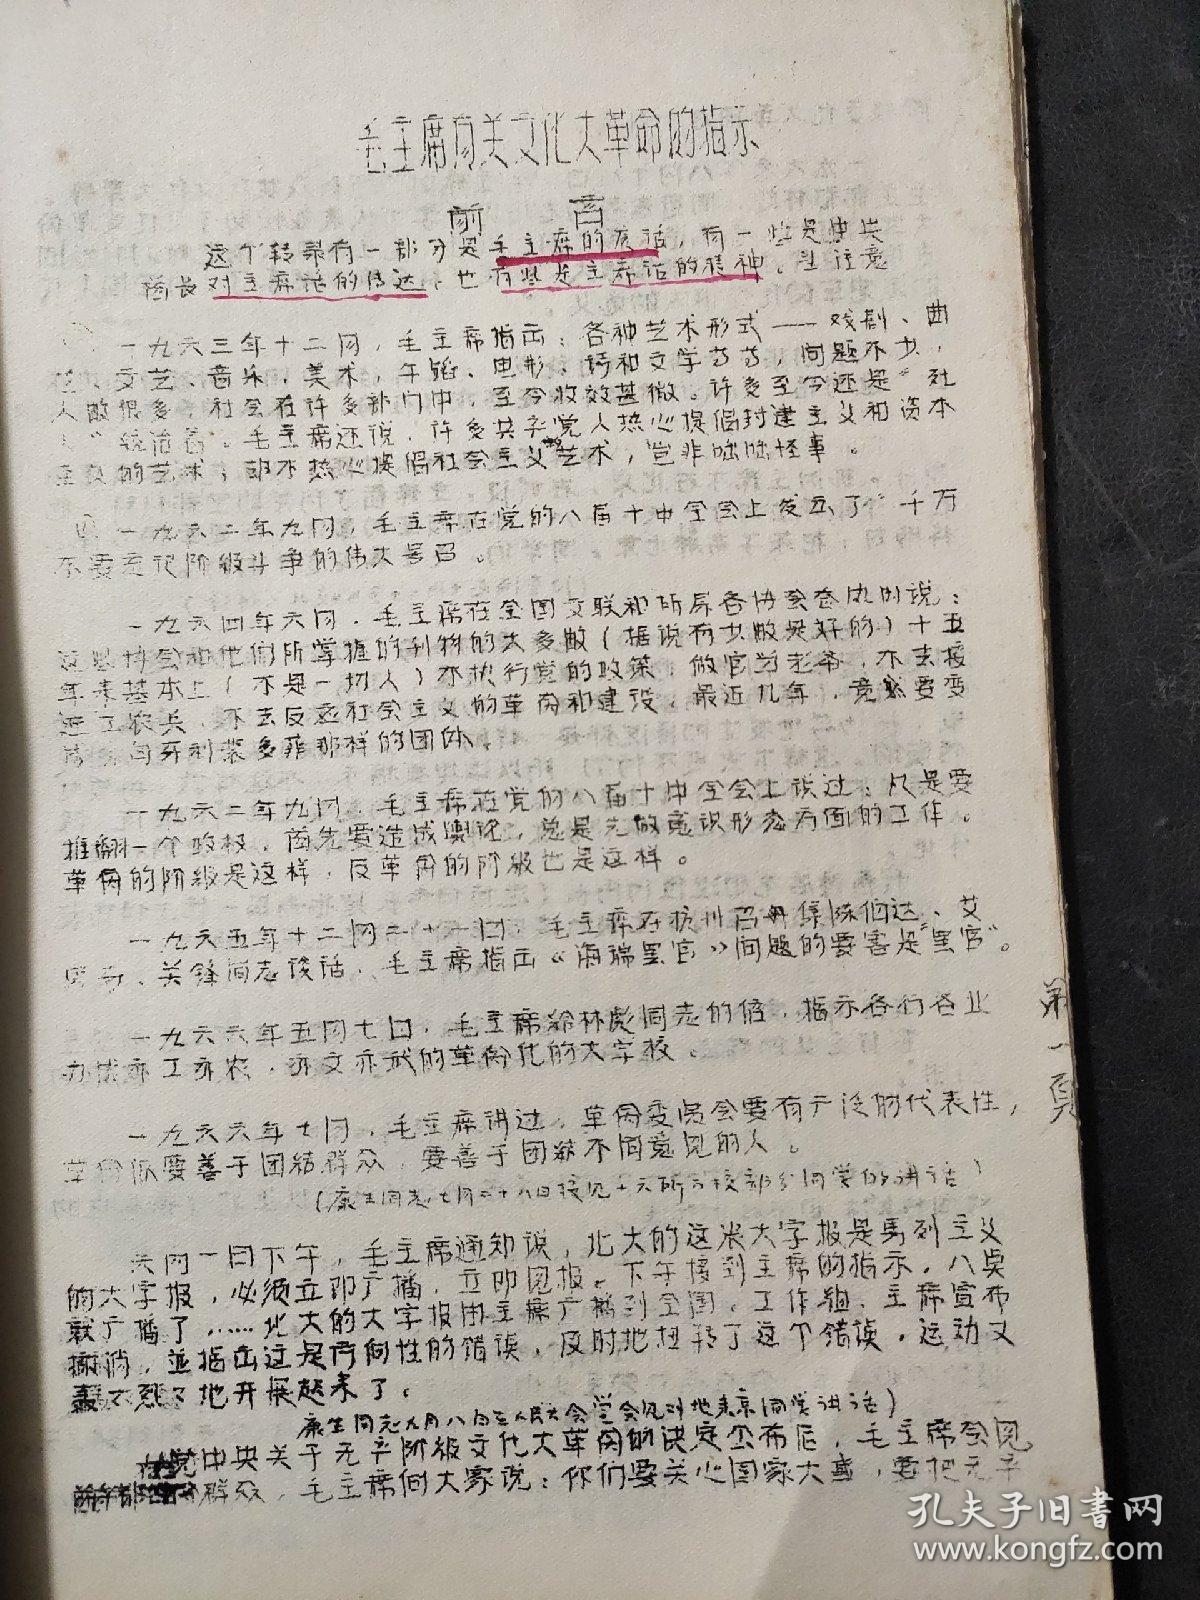 毛主席有关文化大革命的指示
前言
这个转录有一部分是毛主席的原话，有一些是中央
首长对主席话的传达，也有些是主席话的精神。注意
一九六三年十二网，毛主席指出：各种艺术形式——戏剧、曲
文艺、音乐、美术、午蹈、电影、诗和文学等等，问题不少，
人散很多，社会在许多部门中，至今收效甚微。许多至今还是"死
"统治着。毛主席还说，许多共产党人热心提倡封建主义和资本
主义的艺术，却不热心提倡社会主义的艺术，岂非咄咄怪事。
一九六二年九网，毛主席在党的八届十中全会上发出了"千万
不要忘记阶级斗争的伟大号召。
一九六四年六网，毛主席在全国文联和所属各协会整风时说：
这些协会和他们所掌握的刊物的大多散（据说有少散是好的）十五
年来基本上（不是一切人）不执行党的政策，做官当老爷，不去接
近工农兵，不去反应社会主义的革命和建设，最近几年，竟然要变
成匈牙利裴多菲那样的团体。
一九六二年九网，毛主席在党的八届十中全会上说过：凡是要
推翻一个政权，首先要造成舆论，总是先做意识形态方面的工作。
革命的阶级是这样，反革命的阶级也是这样。
一九六五年十二网二十一日，毛主席在杭州召集陈伯达、艾
思奇、关锋同志谈话，毛主席指出《海瑞罢官》问题的要害是"罢官"。
一九六六年五网七日，毛主席给林彪同志的信，指示各行各业
办成亦工亦农，亦文亦武的革命化的大学校。
一九六六年七网，毛主席讲过，革命委员会要有广泛的代表性，
革命派要善于团结群众，要善于团结不同意见的人。
（康生同志七月二十八日接见十六所高校部分同学的讲话）
六网一日下午，毛主席通知说，北大的这张大字报是马列主义
的大字报，必须立即广播，立即见报。下午接到主席的指示，八点
就广播了……北大的大字报由主席广播到全国，工作组，主席宣布
撤消，並指出这是方向性的错误，及时地扭转了这个错误。运动又
轰轰烈烈地开展起来了。
康生同志九月八日在人民大会堂会见外地来京同学讲话）
党中央关于无产阶级文化大革命的决定公布后，毛主席会见
群众，毛主席向大家说：你们要关心国家大事，要把无产
第一頁
孔夫子旧书网
www.kongfz.com